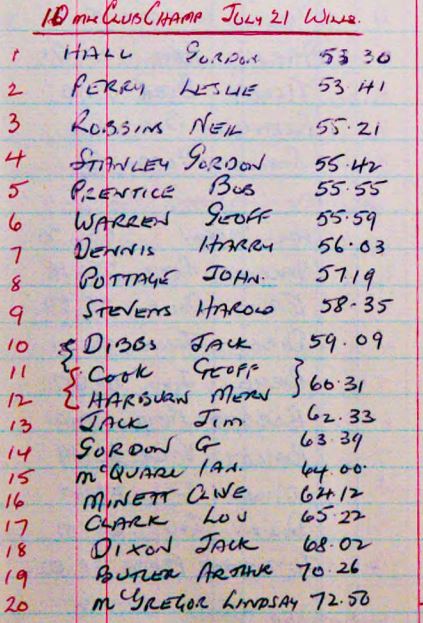 10 mile CLUB CHAMP JULY 21 WILLS.
1 HALL GORDON 53 30
2 PERRY LESLIE 53.41
3 ROBBINS NEIL 55.21
4 STANLEY GORDON 55.42
5 PRENTICE BOB 55.55
6 WARREN GEOFF 55.59
7 DENNIS HARRY 56.03
8 POTTAGE JOHN. 57.19
9 STEVENS HAROLD 58.35
10 DIBBS JACK 59.09
11 COOK GEOFF
12 HARBURN MERV } 60.31
13 JACK JIM 62.33
14 GORDON G 63.39
15 McQUARL IAN. 64.00
16 MINETT CLIVE 64.12
17 CLARK LOU 65.22
18 DIXON JACK 68.02
19 BUTLER ARTHUR 70.26
20 McGREGOR LINDSAY 72.50